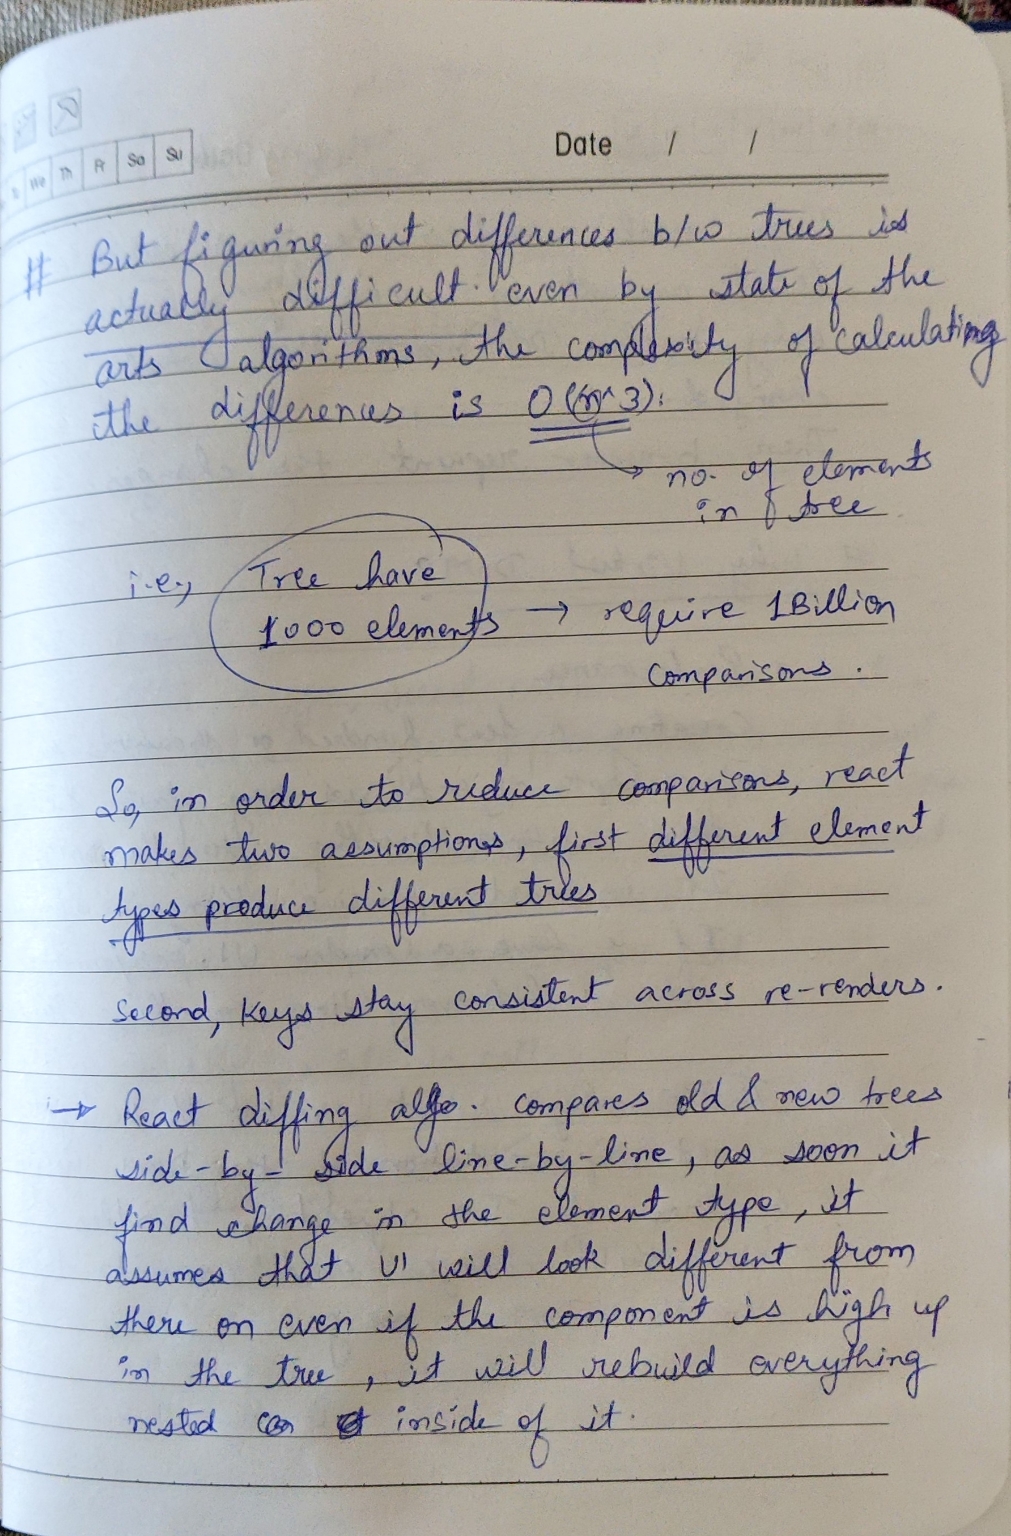 We Th Fr Sa Su
Date / /
# But figuring out differences b/w trees is
actually difficult. even by state of the
arts algorithms, the complexity of calculating
the differences is O(n^3).
→ no. of elements
in tree
i.e., Tree have
1000 elements → require 1Billion
comparisons.
So, in order to reduce comparisons, react
makes two assumptions, first different element
types produce different trees
second, keys stay consistent across re-renders.
→ React diffing algo. compares old & new trees
side-by-side line-by-line, as soon it
find change in the element type, it
assumes that UI will look different from
there on even if the component is high up
in the tree, it will rebuild everything
nested inside of it.